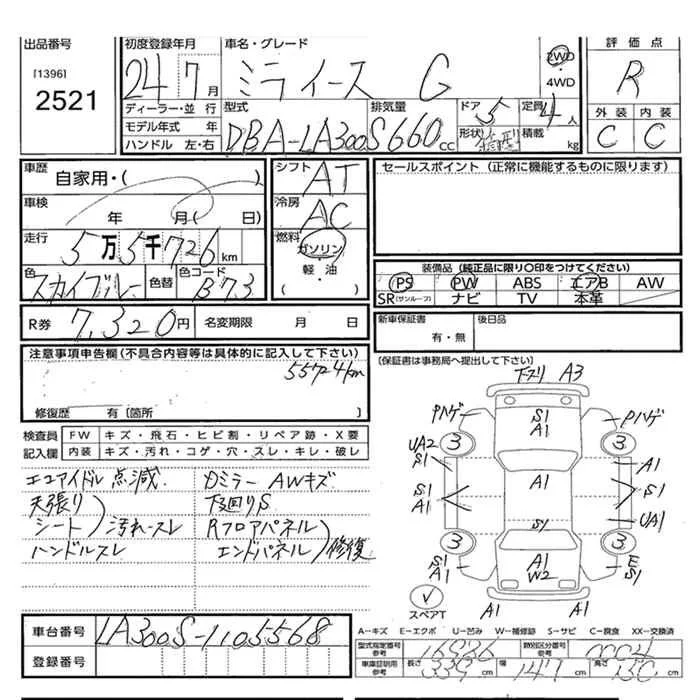 出品番号
[1396]
2521
初度登録年月
24 7 月
車名・グレード
ミライース G
2WD
・
4WD
評価点
R
外装 内装
C C
ディーラー・並行
モデル年式 年
ハンドル 左・右
型式
DBA-LA300S
排気量
660 cc
ドア
5
形状
定員
4 人
積載
kg
車歴
自家用・( )
車検
年 月( 日)
走行
5万5千726km
色
スカイブルー
色替
色コード
B73
シフト
AT
冷房
AC
燃料
ガソリン
・
軽・油
セールスポイント (正常に機能するものに限ります)
装備品 (純正品に限り○印をつけてください)
PS PW ABS エアB AW
SR(サンルーフ) ナビ TV 本革
R券 7,320円 名変期限 月 日
新車保証書
有・無
後日品
[保証書は事務局へ提出して下さい]
注意事項申告欄(不具合内容等は具体的に記入して下さい)
55724km
修復歴 有[箇所 ]
検査員 FW キズ・飛石・ヒビ割・リペア跡・X要
記入欄 内装 キズ・汚れ・コゲ・穴・スレ・キレ・破レ
エコアイドル点滅
天張り
シート)汚れスレ
ハンドルスレ
Dミラー AWキズ
下廻りS
Rフロアパネル
エンドパネル)修復
下スリ A3
Pハゲ
S1
A1
Pハゲ
UA2
S1
3
3
A1
S1
A1
A1
S1
UA1
S1
S1
A1
3
3
A1
W2
E
S1
スペアT
A1
A1
車台番号 LA300S-1105568
登録番号
A-キズ E-エクボ U-凹み W-補修跡 S-サビ C-腐食 XX-交換済
型式指定番号
参考
16926
類別区分番号
参考
0004
車庫証明用
参考
長さ 339 cm 幅 147 cm 高さ 150 cm